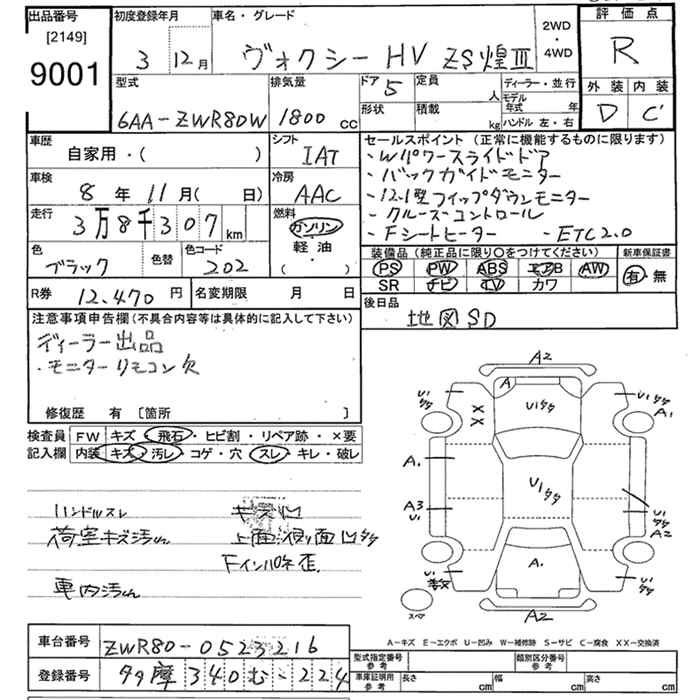 出品番号
[2149]
9001
初度登録年月
3 12月
車名・グレード
ヴォクシー HV ZS煌Ⅲ
2WD
・
4WD
評価点
R
外装 内装
D C
型式
6AA-ZWR80W
排気量
1800 cc
ドア 5
形状
定員 人
積載 kg
ディーラー・並行
モデル年式 年
ハンドル 左・右
車歴
自家用・( )
シフト
IAT
車検
8年 11月( 日)
冷房
AAC
走行
3万8千307km
燃料
ガソリン
軽油
( )
色
ブラック
色替
色コード
202
R券 12,470円
名変期限 月 日
セールスポイント(正常に機能するものに限ります)
・Wパワースライドドア
・バックガイドモニター
・12.1型フィップダウンモニター
・クルーズコントロール
・Fシートヒーター ・ETC2.0
装備品(純正品に限り○をつけてください)
PS PW ABS エアB AW
SR ナビ TV カワ
新車保証書
有・無
後日品
地図SD
注意事項申告欄(不具合内容等は具体的に記入して下さい)
ディーラー出品
・モニターリモコン欠
修復歴 有 [箇所 ]
検査員記入欄
FW キズ・飛石・ヒビ割・リペア跡・×要
内装 キズ・汚レ・コゲ・穴・スレ・キレ・破レ
ハンドルスレ
荷室キズ汚れ
上面、横り面凹タタ
Fインパネ歪
車内汚れ
A2
A
U1タタ
U1タタ
U1タタ
A1
XX
A1
U1タタ
A3
U1
U1タタ
A2
A1
U1
U1タタ
スペア
A2
A-キズ E-エクボ U-凹み W-補修跡 S-サビ C-腐食 XX-交換済
車台番号 ZWR80-0523216
登録番号 多摩340む-224
型式指定番号 参考
類別区分番号 参考
車庫証明用 参考
長さ cm
幅 cm
高さ cm